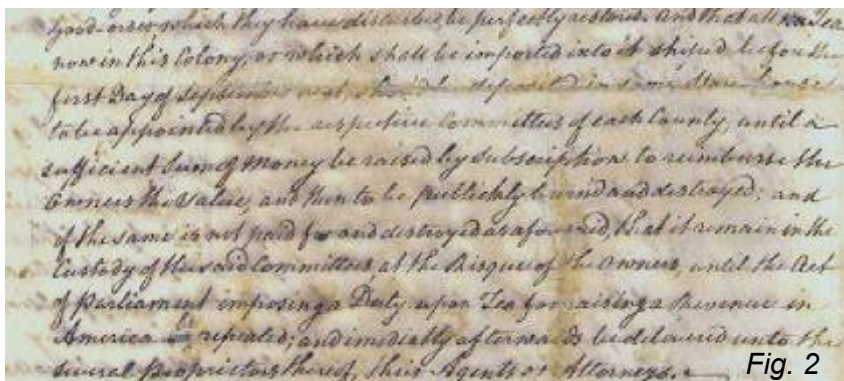 good order which they have disturbed be perfectly restored. And that all Tea
now in this Colony, or which shall be imported into it shiped before the
first Day of September next, should be deposited in some Store house
to be appointed by the respective Committees of each County, until a
sufficient Sum of Money be raised by subscription to reimburse the
Owners the Value, and then to be publickly burn'd and destroyed; and
if the same is not paid for and destroyed as aforesaid, that it remain in the
Custody of the said Committees, at the Risque of the Owners, until the Act
of Parliament imposing a Duty upon Tea for raising a Revenue in
America repealed; and imediatly afterwards be delivered unto the
several Proprietors thereof, their Agents or Attorneys.
Fig. 2